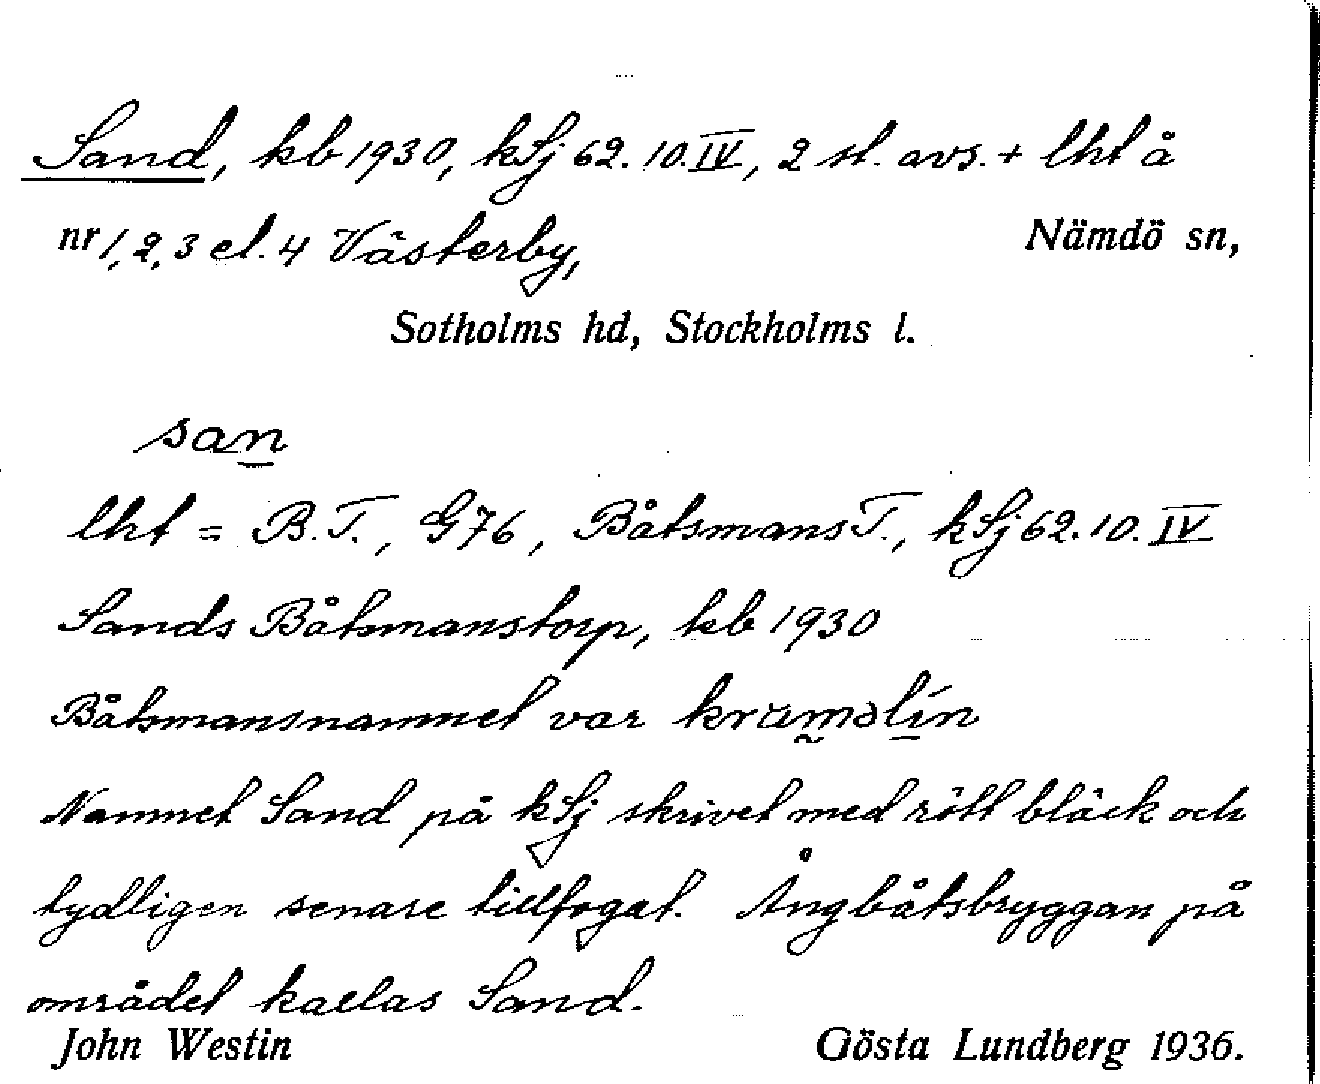 Sand, kb 1930, kSj 62.10.IV, 2 st. avs. + lht å
nr 1, 2, 3 el. 4 Västerby, Nämdö sn,
Sotholms hd, Stockholms l.
san
lht = B.T., G76, BåtsmansT., kSj 62.10.IV
Sands Båtsmanstorp, kb 1930
Båtsmansnamnet var kraməlín
Namnet Sand på kSj skrivet med rött bläck och
tydligen senare tillfogat. Ångbåtsbryggan på
området kallas Sand.
John Westin Gösta Lundberg 1936.